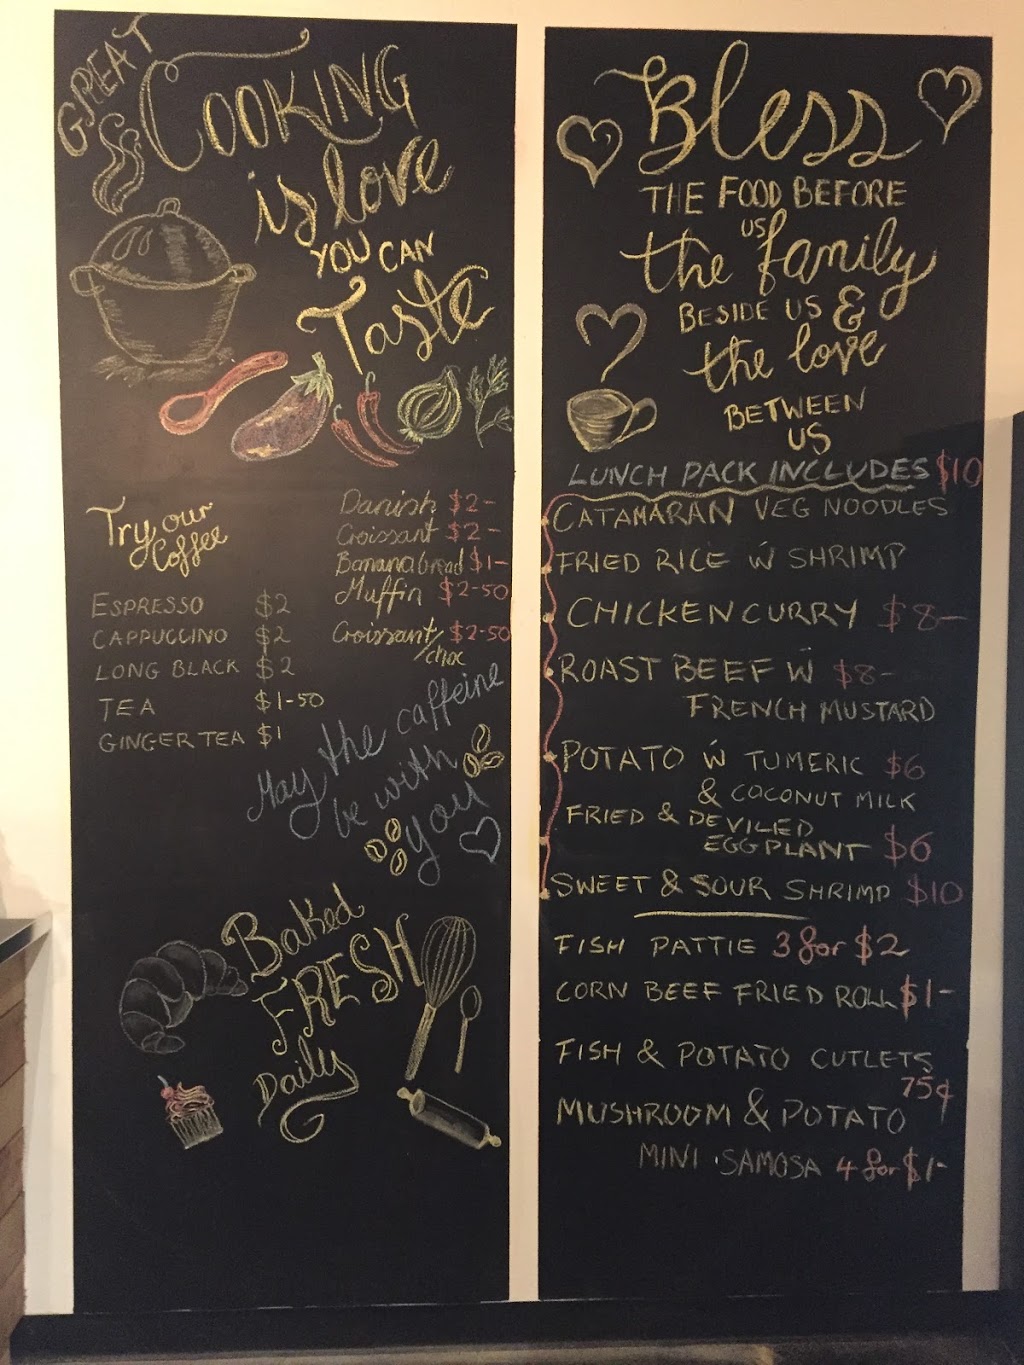 GREAT
COOKING
is love
YOU CAN
Taste
Try our
Coffee
ESPRESSO $2
CAPPUCCINO $2
LONG BLACK $2
TEA $1-50
GINGER TEA $1
Danish $2-
Croissant $2-
Banana bread $1-
Muffin $2-50
Croissant/choc $2-50
May the caffeine
be with
you
Baked
FRESH
Daily
Bless
THE FOOD BEFORE
US
the family
BESIDE US &
the love
BETWEEN
US
LUNCH PACK INCLUDES $10
CATAMARAN VEG NOODLES
FRIED RICE W SHRIMP
CHICKEN CURRY $8-
ROAST BEEF W $8-
FRENCH MUSTARD
POTATO W TUMERIC $6
& COCONUT MILK
FRIED & DEVILED
EGGPLANT $6
SWEET & SOUR SHRIMP $10
FISH PATTIE 3 for $2
CORN BEEF FRIED ROLL $1-
FISH & POTATO CUTLETS
75¢
MUSHROOM & POTATO
MINI SAMOSA 4 for $1-